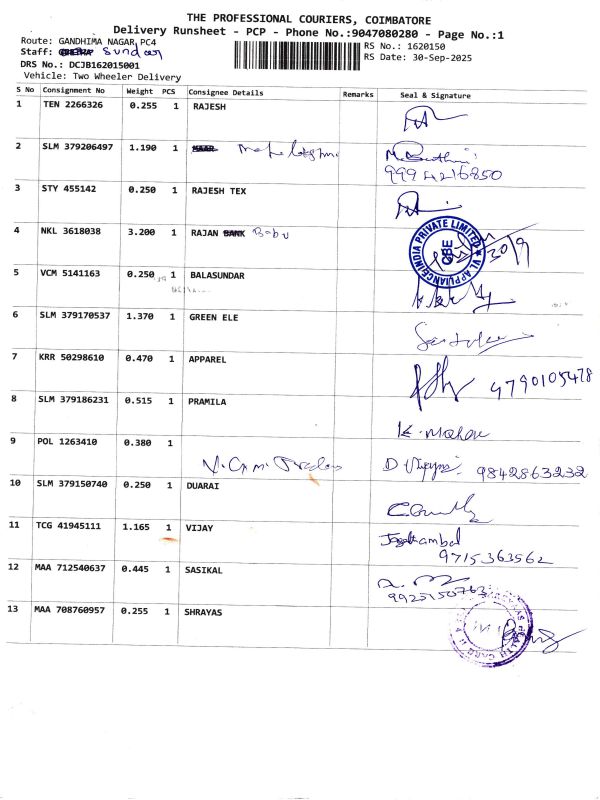 THE PROFESSIONAL COURIERS, COIMBATORE
Delivery Runsheet - PCP - Phone No.:9047080280 - Page No.:1
Route: GANDHIMA NAGAR,PC4
RS No.: 1620150
Staff: Sundar
RS Date: 30-Sep-2025
DRS No.: DCJB162015001
Vehicle: Two Wheeler Delivery
S No Consignment No Weight PCS Consignee Details Remarks Seal & Signature
1 TEN 2266326 0.255 1 RAJESH
2 SLM 379206497 1.190 1
3 STY 455142 0.250 1 RAJESH TEX
4 NKL 3618038 3.200 1 RAJAN BANK Babu
VL APPLIANCEINDIA PRIVATE LIMITED
CBE
30/9
5 VCM 5141163 0.250 1 BALASUNDAR
6 SLM 379170537 1.370 1 GREEN ELE
7 KRR 50298610 0.470 1 APPAREL
9790105478
8 SLM 379186231 0.515 1 PRAMILA
K. Mohan
9 POL 1263410 0.380 1
9842863232
10 SLM 379150740 0.250 1 DUARAI
11 TCG 41945111 1.165 1 VIJAY
9715363562
12 MAA 712540637 0.445 1 SASIKAL
13 MAA 708760957 0.255 1 SHRAYAS